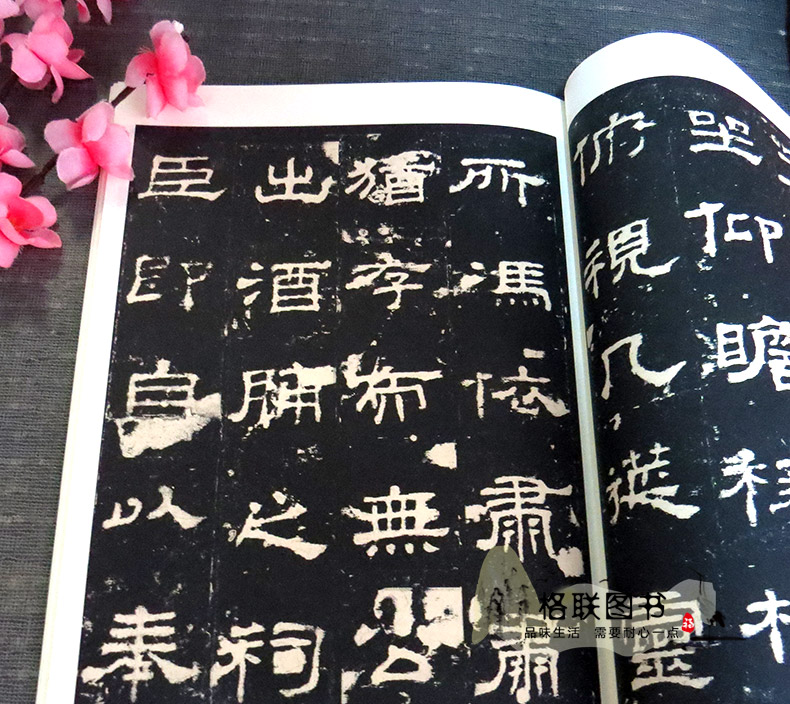 坐仰瞻
俯視几筵靈
所馮依肅肅
猶存而無公
出酒脯之祠
臣即自以奉
格联图书
品味生活 需要耐心一点